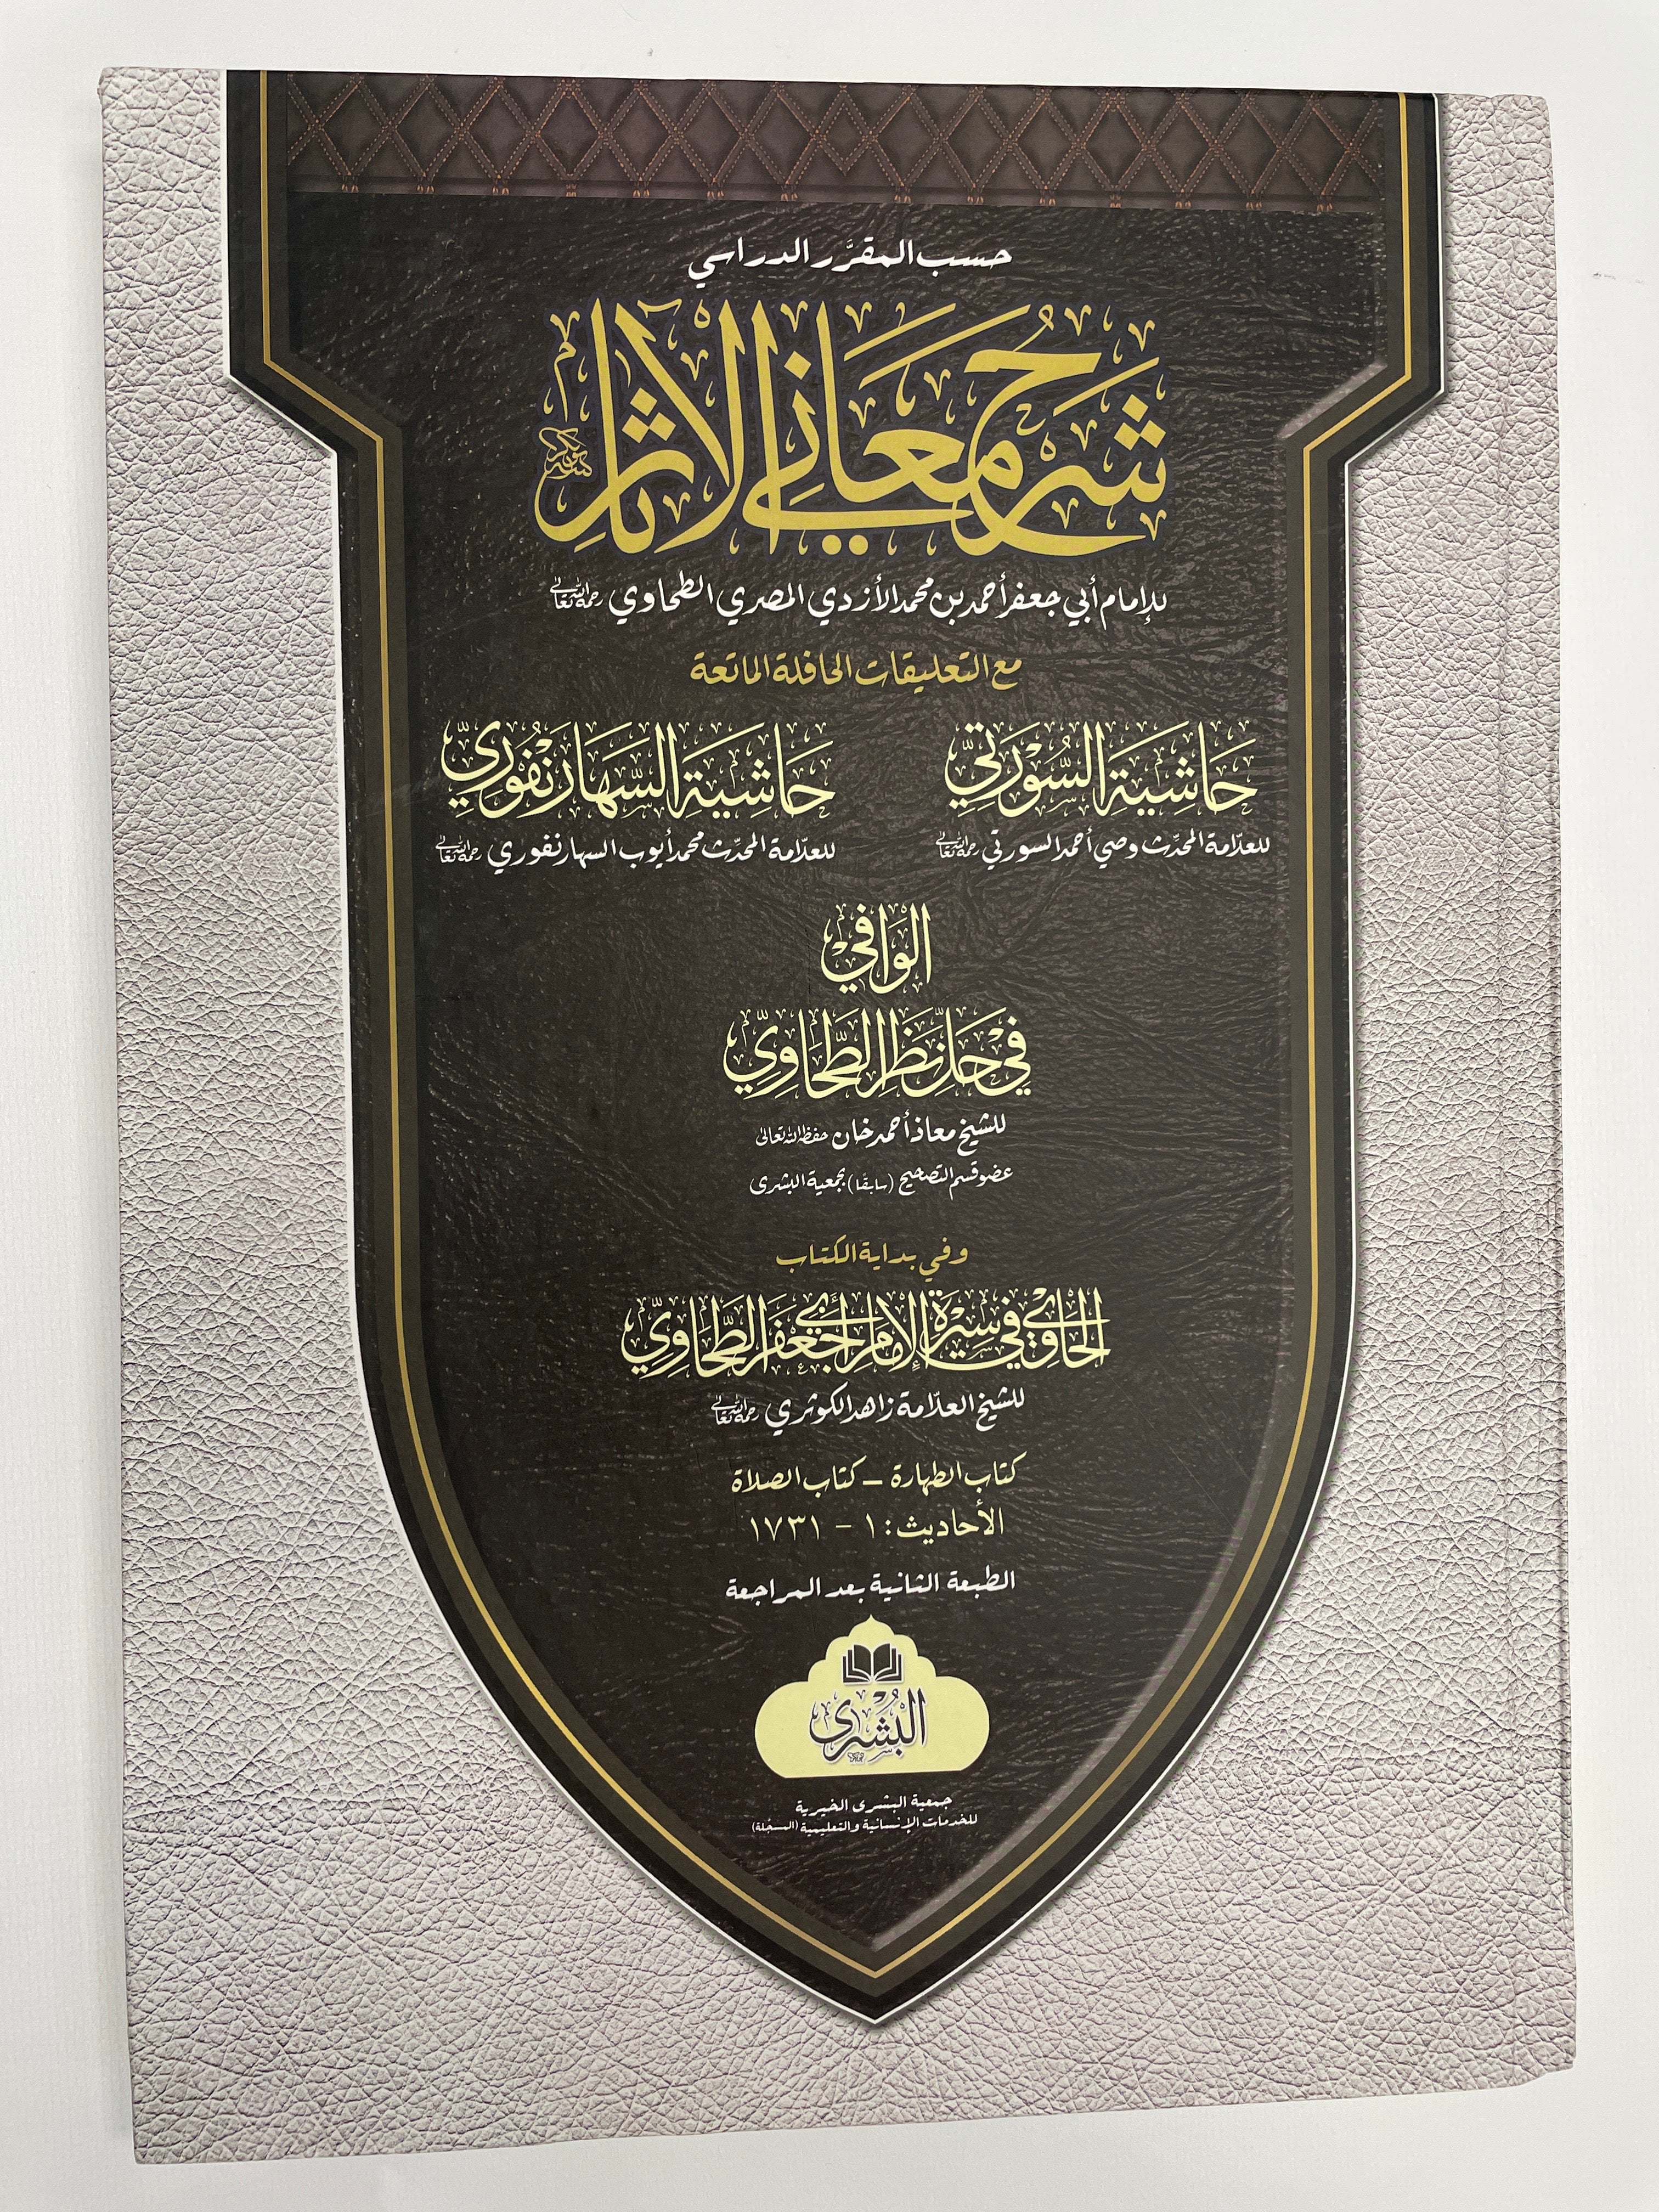 حسب المقرَّر الدراسي
شَرح مَعَانِي الآثارِ
للإمام أبي جعفر أحمد بن محمد الأزدي المصري الطحاوي رحمه الله تعالى
مع التعليقات الحافلة الماتعة
حَاشِيَة السُّوْرَتِيّ
للعلّامة المحدّث وصي أحمد السورتي رحمه الله تعالى
حَاشِيَة السَّهَارَنْفُوْرِيّ
للعلّامة المحدّث محمد أيوب السهارنفوري رحمه الله تعالى
الوَافِيْ
فِيْ حَلِّ نَظَرِ الطَّحَاوِيّ
للشيخ معاذ أحمد خان حفظه الله تعالى
عضو قسم التصحيح (سابقًا) بجمعية البشرى
وفي بداية الكتاب
الحَاوِيْ فِيْ سِيْرَةِ الإِمَامِ أَبِيْ جَعْفَرَ الطَّحَاوِيّ
للشيخ العلّامة زاهد الكوثري رحمه الله تعالى
كتاب الطهارة – كتاب الصلاة
الأحاديث: ١ – ١٧٣١
الطبعة الثانية بعد المراجعة
البُشْرى
جمعية البشرى الخيرية
للخدمات الإنسانية والتعليمية (المسجّلة)